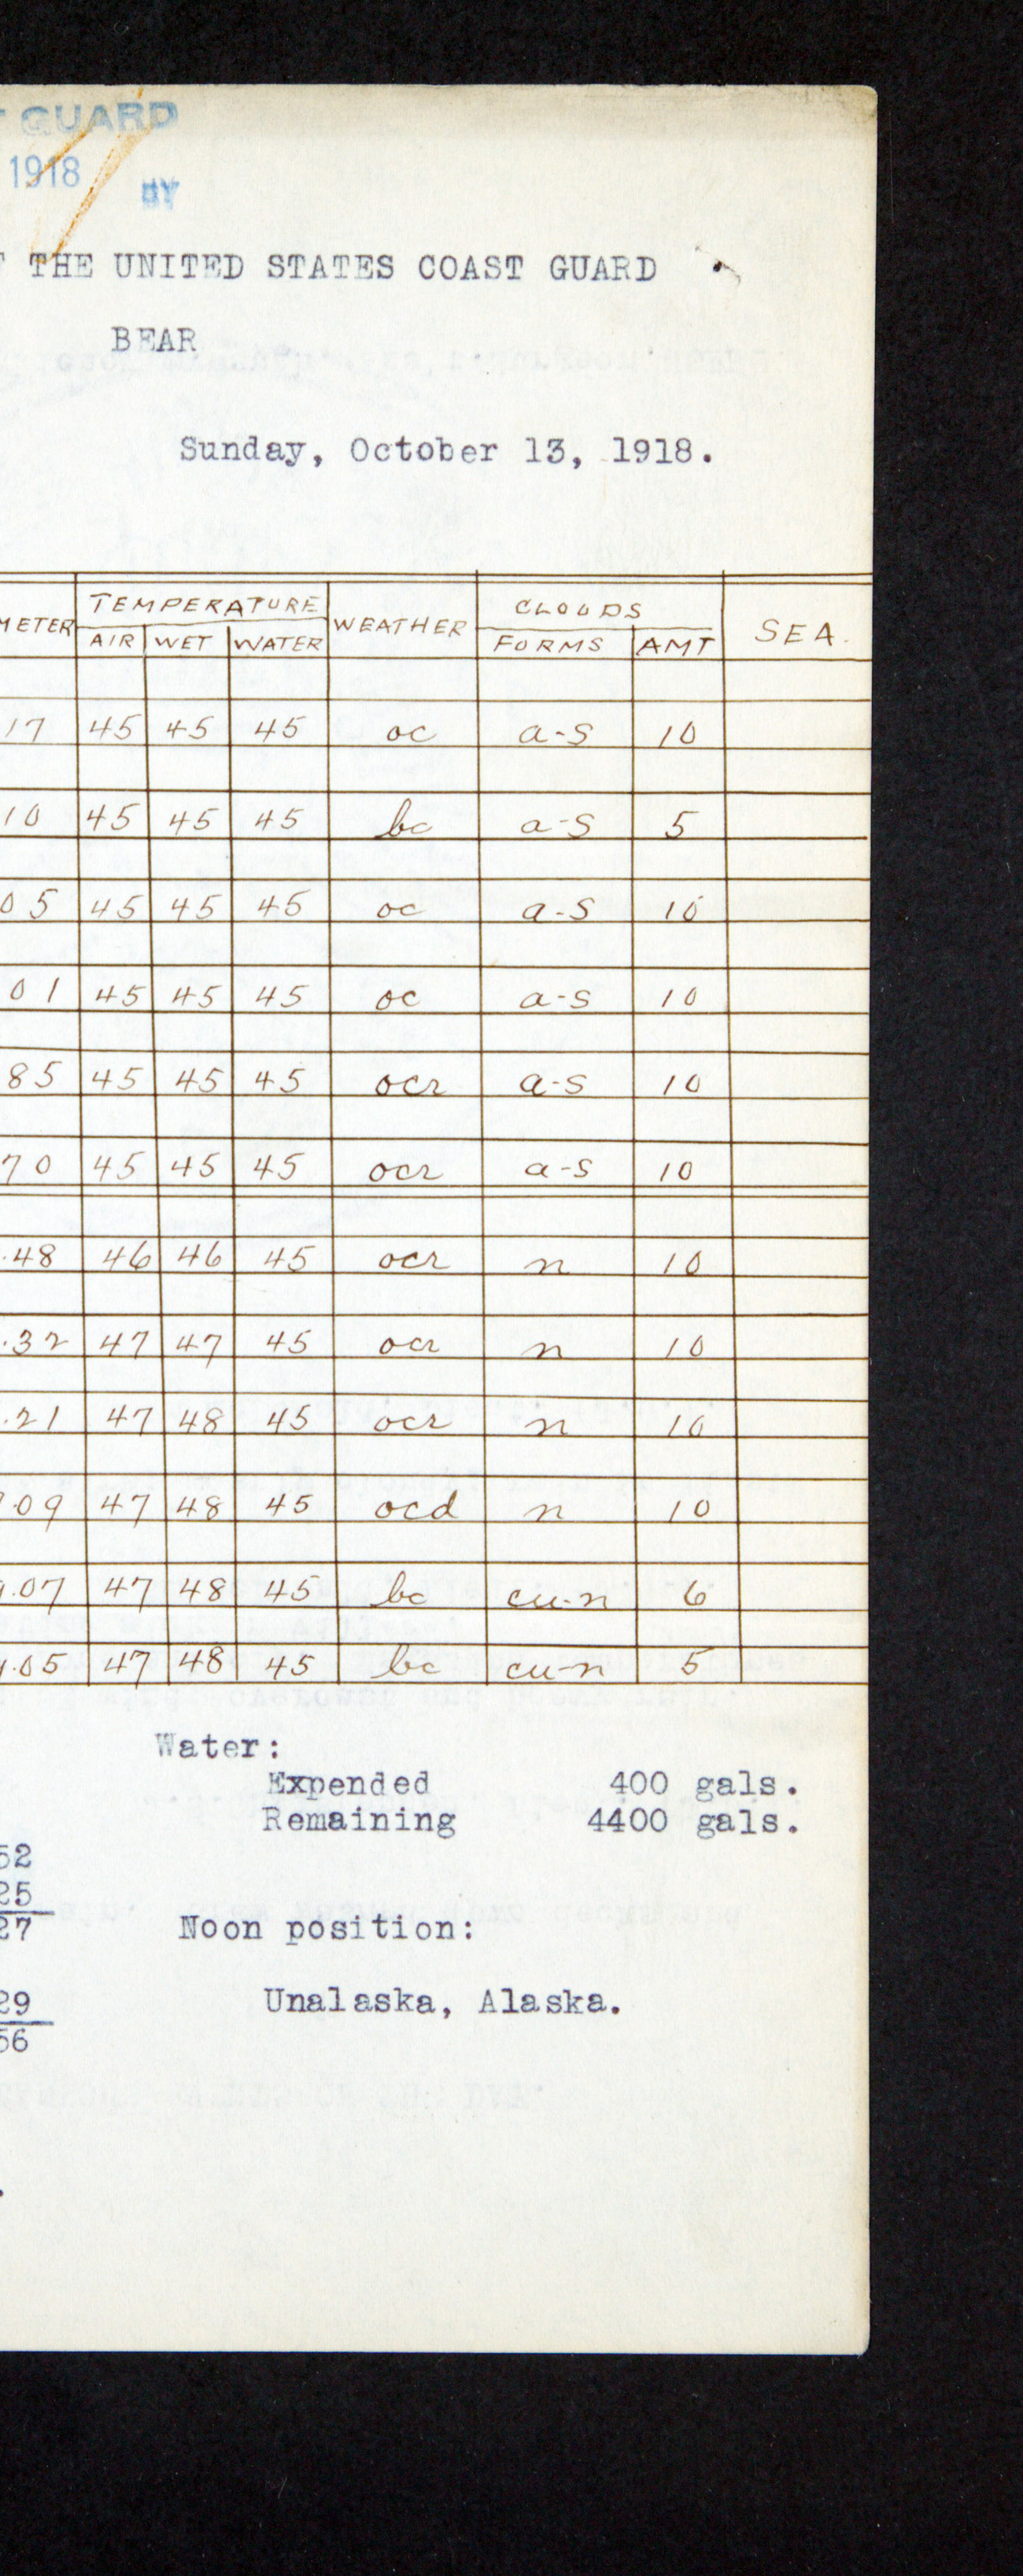 GUARD
1918 BY
THE UNITED STATES COAST GUARD
BEAR
Sunday, October 13, 1918.
METER TEMPERATURE WEATHER CLOUDS SEA.
AIR WET WATER FORMS AMT
17 45 45 45 oc a-s 10
10 45 45 45 bc a-s 5
05 45 45 45 oc a-s 10
01 45 45 45 oc a-s 10
85 45 45 45 ocr a-s 10
70 45 45 45 ocr a-s 10
.48 46 46 45 ocr n 10
.32 47 47 45 ocr n 10
.21 47 48 45 ocr n 10
.09 47 48 45 ocd n 10
.07 47 48 45 bc cu-n 6
.05 47 48 45 bc cu-n 5
Water:
Expended 400 gals.
Remaining 4400 gals.
52
25
27 Noon position:
29 Unalaska, Alaska.
56